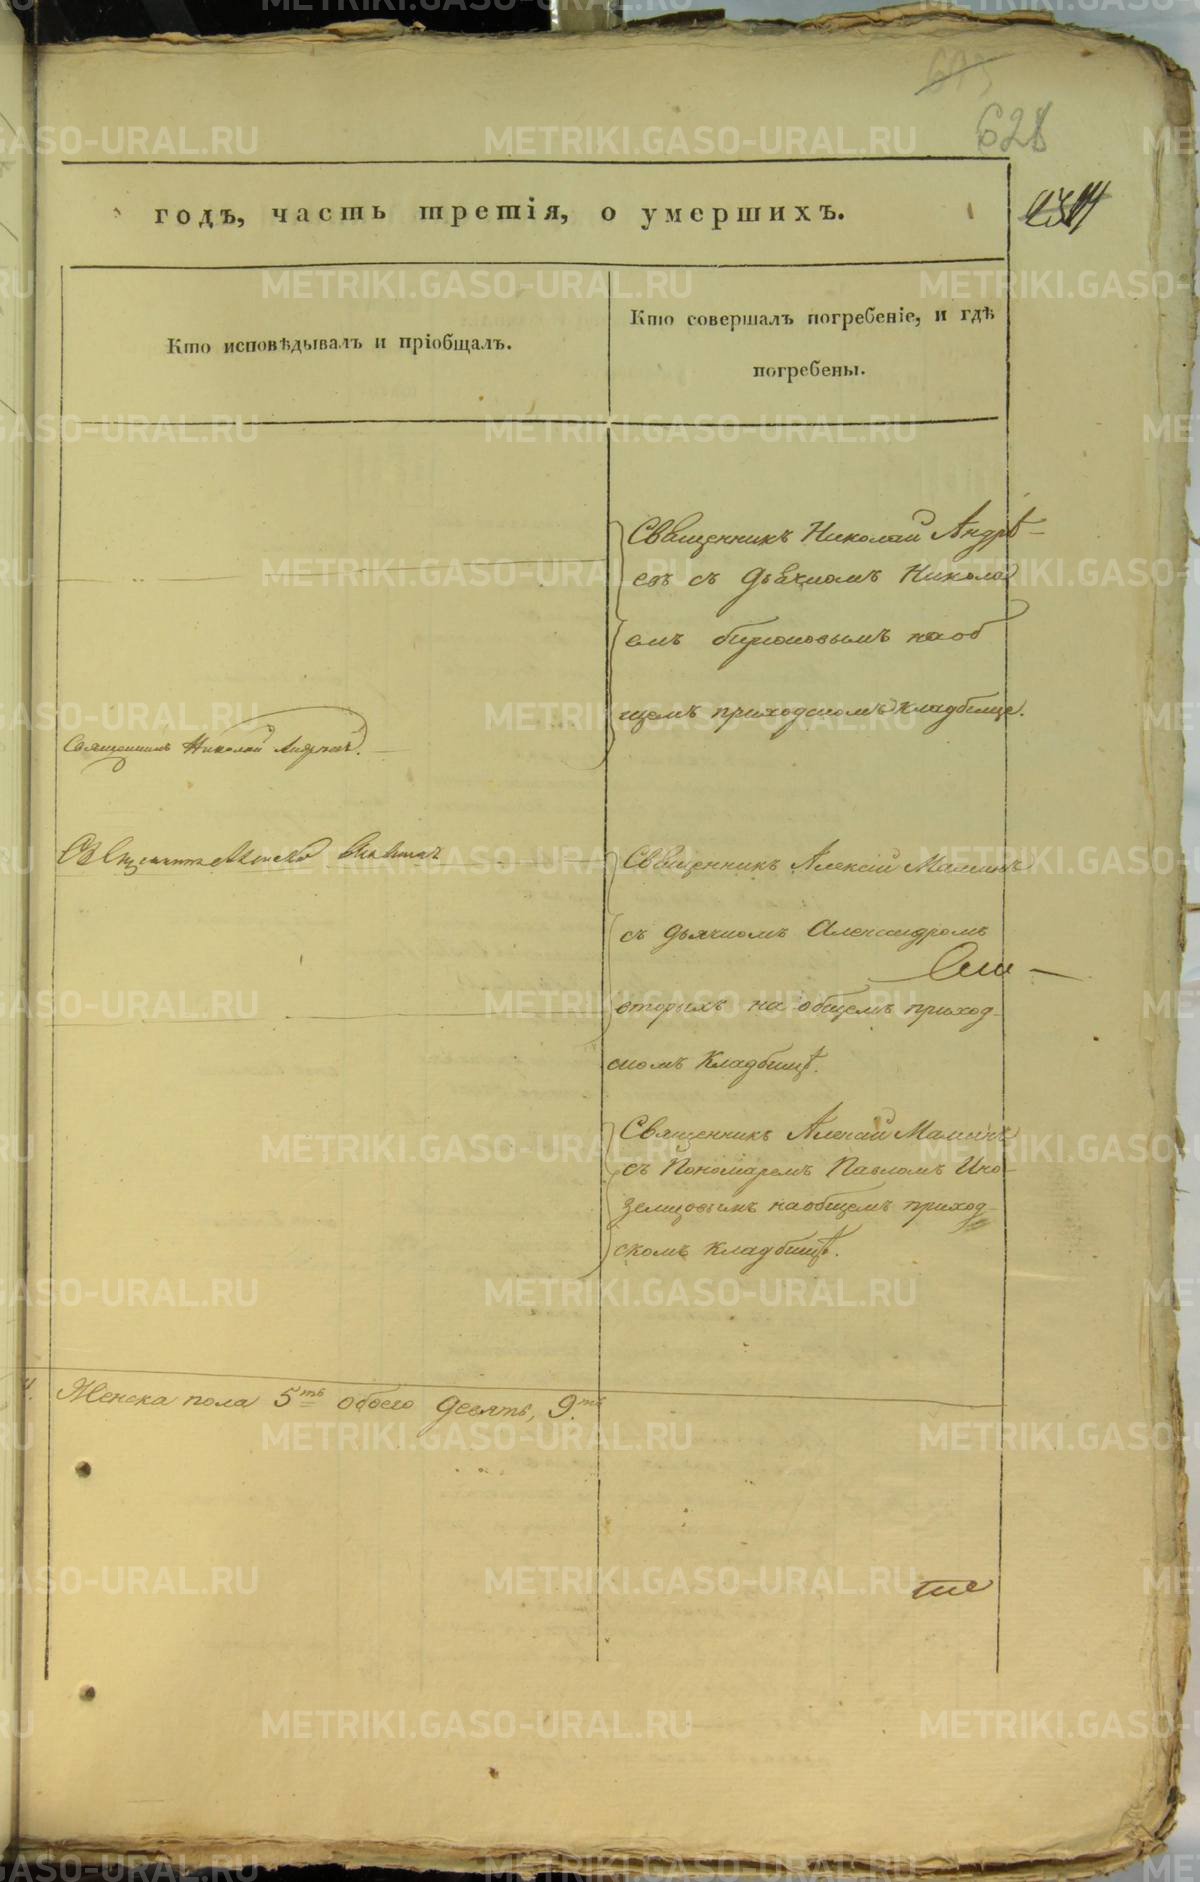 628
годъ, часть третія, о умершихъ.
Кто исповѣдывалъ и пріобщалъ.
Кто совершалъ погребеніе, и гдѣ
погребены.
Священникъ Николай Андрѣ-
евъ съ дьячкомъ Никола
емъ на об
щемъ приходскомъ кладбище.
Священникъ Николай Андреевъ.
Священникъ Алексій Маминъ
съ дьячкомъ Александромъ
на общемъ приход-
скомъ кладбищѣ.
Священникъ Алексій Маминъ
съ Пономаремъ Павломъ Ино-
земцовымъ на общемъ приход-
скомъ кладбищѣ.
Женска пола 5ть обоего девять, 9ть
METRIKI.GASO-URAL.RU